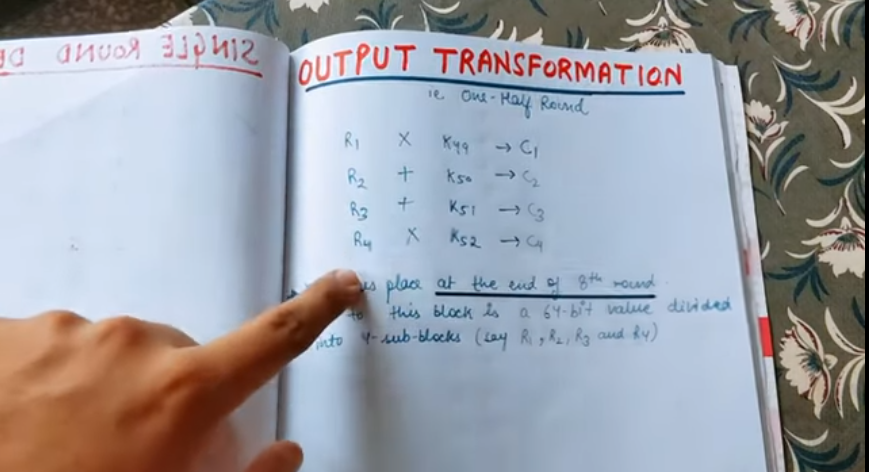 SINGLE ROUND
OUTPUT TRANSFORMATION
ie One-Half Round
R1 × K49 → C1
R2 + K50 → C2
R3 + K51 → C3
R4 × K52 → C4
place at the end of 8th round.
to this block is a 64-bit value divided
into 4-sub-blocks (say R1, R2, R3 and R4)